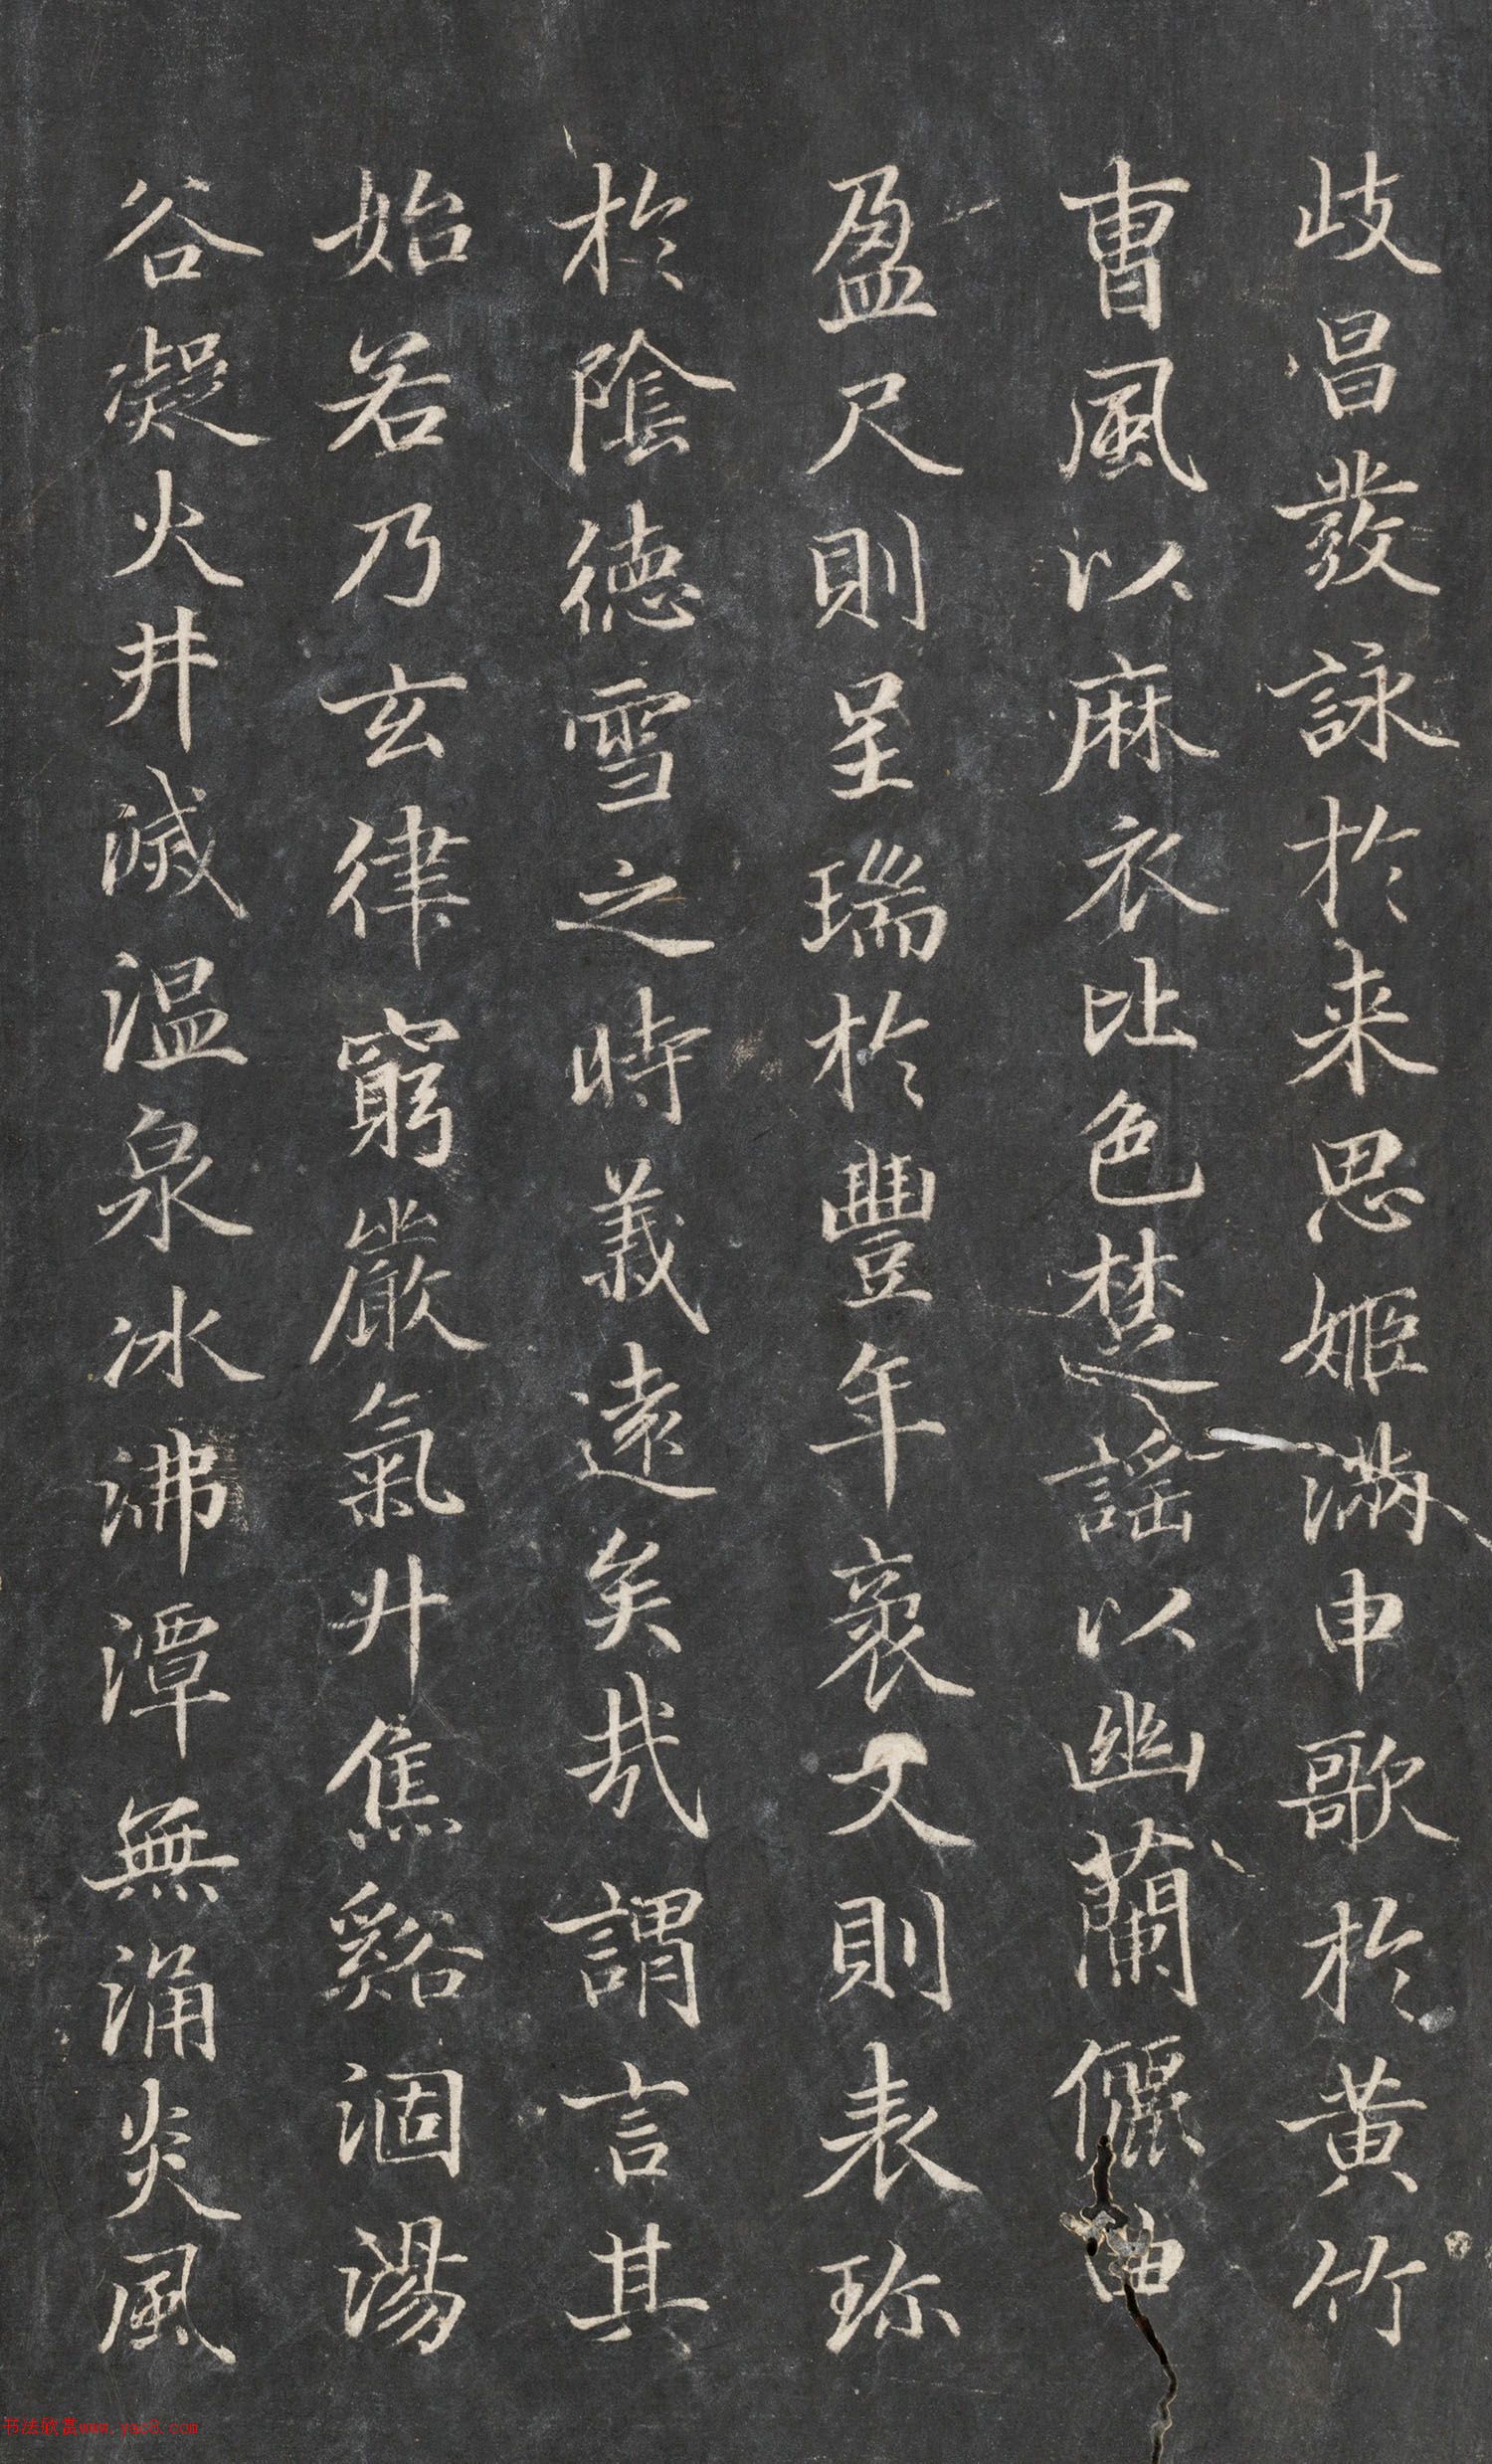 歧昌發詠於来思姬滿申歌於黄竹
曺風以麻衣比色楚謡以幽蘭儷曲
盈尺則呈瑞於豐年袤丈則表珎
於陰德雪之時義遠矣哉謂言其
始若乃玄律窮嚴氣升焦谿涸湯
谷凝火井滅温泉冰沸潭無涌炎風
书法欣赏www.yac8.com